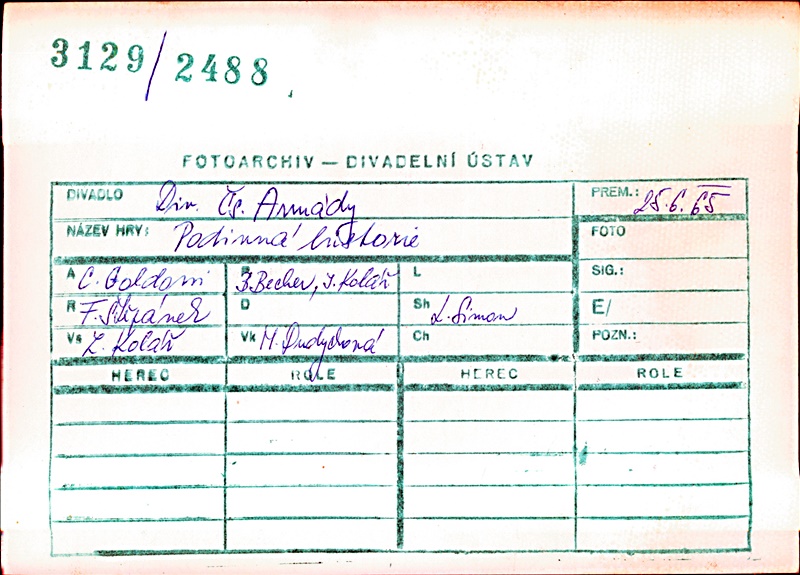 3129/2488
FOTOARCHIV — DIVADELNÍ ÚSTAV
DIVADLO Div. Čs. Armády PREM.: 25.6.65
NÁZEV HRY: Podivná historie FOTO
A C. Goldoni P B. Becher, J. Kolář L SIG.:
R F. Štěpánek D Sh L. Simon E/
Vs Z. Kolář Vk M. Dudychová Ch POZN.:
HEREC ROLE HEREC ROLE